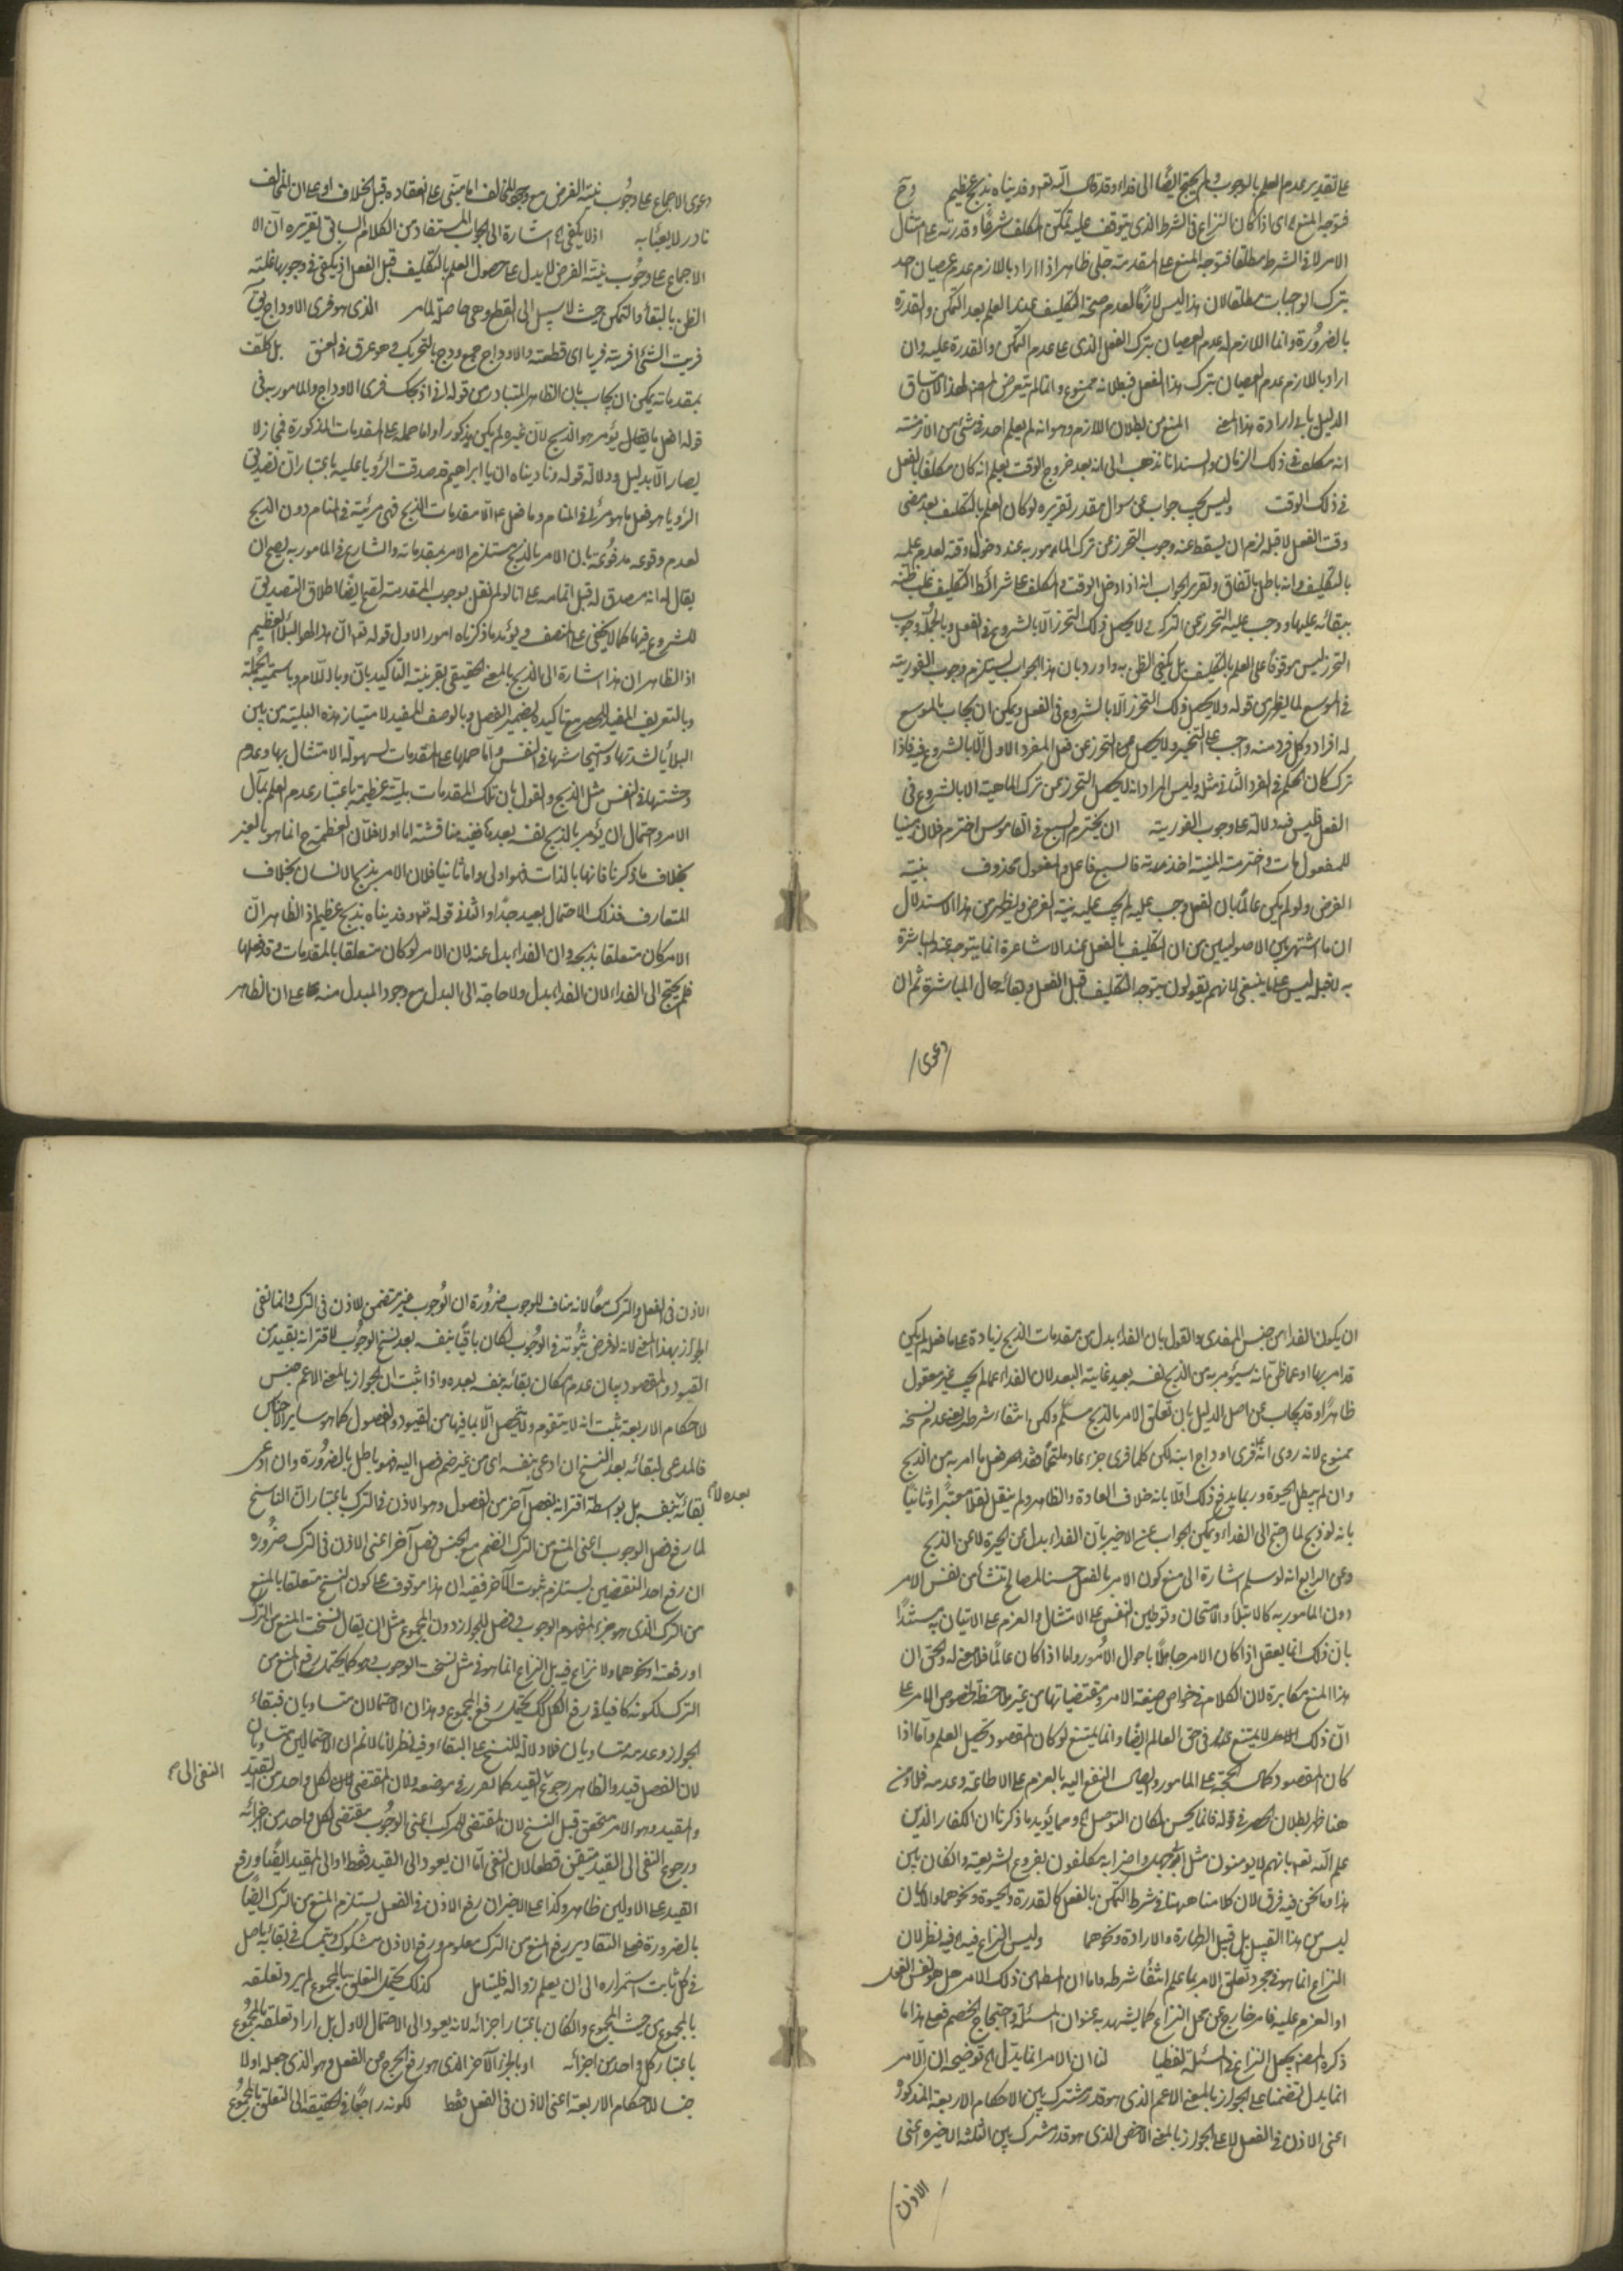 على تقدير عدم العلم بالوجوب ولم يحتج ايضا الى فداء وقد قال الله تعم وفديناه بذبح عظيم وح
فتوجه المنع اى اذا كان النزاع فى الشرط الذى يتوقف عليه تمكن المكلف شرعا وقدرته على امتثال
الامر لا فى الشرط مطلقا فتوجه المنع على المقدمة جلى ظاهر اذا اراد باللازم عدم عصيان احد
بترك الواجبات مطلقا لان هذا ليس لازما لعدم صحة التكليف عند العلم بعد التمكن والقدرة
بالضرورة وانما اللازم له عدم العصيان بترك الفعل الذى علم عدم التمكن والقدرة عليه وان
اراد باللازم عدم العصيان بترك هذا الفعل فبطلانه ممنوع وانما لم يتعرض المص لهذا لان سياق
الدليل يابى ارادة هذا المعنى المنع من بطلان اللازم وهو انه لم يعلم احد فى شئ من الازمنة
انه مكلف فى ذلك الزمان والسند انا نذهب الى انه بعد خروج الوقت يعلم انه كان مكلفا بالفعل
فى ذلك الوقت وليس يجب جواب عن سوال مقدر تقريره لو كان العلم بالتكليف بعد مضى
وقت الفعل لا قبله لزم ان يسقط عنه وجوب التحرز عن ترك المامور به عند دخول وقته لعدم علمه
بالتكليف وانه باطل بالتفاق وتقرير الجواب انه اذا دخل الوقت والمكلف على شرائط التكليف غلب ظنه
ببقائه عليها ووجب عليه التحرز عن الترك ولا يحصل ذلك التحرز الا بالشروع فى الفعل وبالجملة وجوب
التحرز ليس موقوفا على العلم بالتكليف بل يكفى الظن به واورد بان هذا الجواب يستلزم وجوب الفورية
فى الموسع لما يظهر من قوله ولا يحصل ذلك التحرز الا بالشروع فى الفعل ويمكن ان يجاب بان الموسع
له افراد وكل فرد منه واجب على التخيير ولا يحصل التحرز عن فعل المفرد الاول الا بالشروع فيه فاذا
ترك كان الحكم فى الفرد الثانى مثله وليس المراد انه لا يحصل التحرز عن ترك الماهية الا بالشروع فى
الفعل فليس فيه دلالة على وجوب الفورية ان يخترم السبع فى القاموس اخترم فلان مبنيا
للمفعول مات واخترمته المنية اخذته فالسبع فاعل والمفعول محذوف بنية
الفرض ولو لم يكن عالما بان الفعل وجب عليه لم يجب عليه نية الفرض ويظهر من هذا الاستدلال
ان ما اشتهر بين الاصوليين من ان التكليف بالفعل عند الاشاعرة انما يتوجه عند المباشرة
به لا قبله ليس على ما ينبغى لانهم يقولون بتوجه التكليف قبل الفعل وبقائه حال المباشرة ثم ان
دعوى
دعوى الاجماع على وجوب نية الفرض مع وجود المخالف اما مبنى على انعقاده قبل الخلاف او على ان المخالف
نادر لا يعبأ به اذ لا يكفى اه اشارة الى الجواب المستفاد من الكلام السابق تقريره ان الا
الاجماع على وجوب نية الفرض لا يدل على حصول العلم بالتكليف قبل الفعل اذ يكفى فى وجوبها غلبة
الظن بالبقاء والتمكن حيث لا سبيل الى القطع وهى حاصلة لما مر الذى هو فرى الاوداج يق
فريت الشئ افريته فريا اى قطعته والاوداج جمع ودج بالتحريك وهو عرق فى العنق بل كلف
بمقدماته يمكن ان يجاب بان الظاهر المتبادر من قوله انى اذبحك فرى الاوداج والمامور به فى
قوله افعل ما تؤمر هو الذبح لان غيره لم يكن مذكورا واما حمله على المقدمات المذكورة فمجاز لا
يصار الا بدليل ودلالة قوله وناديناه ان يا ابراهيم قد صدقت الرؤيا عليه باعتبار ان تصديق
الرؤيا هو فعل ما هو مرئى فى المنام وما فعل الا مقدمات الذبح فهى مرئية فى المنام دون الذبح
لعدم وقوعه مدفوعة بان الامر بالذبح مستلزم الامر بمقدماته والشارع فى المامور به يصح ان
يقال له انه مصدق له قبل اتمامه على انا لو لم نقل بوجوب المقدمة لصح ايضا اطلاق التصديق
للشروع فيها كما لا يخفى على المنصف ويؤيد ما ذكرناه امور الاول قوله تعم ان هذا لهو البلاء العظيم
اذ الظاهر ان هذا اشارة الى الذبح بالمعنى الحقيقى بقرينة التاكيد بان وباللام وباسمية الجملة
وبالتعريف المفيد للحصر مع تاكيده بضمير الفصل وبالوصف المفيد لامتياز هذه البلية من بين
البلايا لشدتها واستيحاشها فى النفس واما حملها على المقدمات لسهولة الامتثال بها وعدم
وحشتها فى النفس مثل الذبح والقول بان تلك المقدمات بلية عظيمة باعتبار عدم العلم بمآل
الامر واحتمال ان يؤمر بالذبح نفسه بعدها ففيه مناقشة اما اولا فلان العظمة ح انما هو بالغير
بخلاف ما ذكرنا فانها بالذات فهو اولى واما ثانيا فلان الامر بذبح الانسان بخلاف
المتعارف فذلك الاحتمال بعيد جدا والثانى قوله تعم وفديناه بذبح عظيم اذ الظاهر ان
الامر كان متعلقا بذبحه وان الفداء بدل عنه لان الامر لو كان متعلقا بالمقدمات وقد فعلها
فلم يحتج الى الفداء لان الفداء بدل ولا حاجة الى البدل مع وجود المبدل منه على ان الظاهر
ان يكون الفداء من جنس المفدى والقول بان الفداء بدل من مقدمات الذبح زيادة على ما فعل لم يكن
قد امر بها او عما ظن انه سيؤمر به من الذبح نفسه بعيد غاية البعد لان الفداء عما لم يجب غير معقول
ظاهرا وقد يجاب عن اصل الدليل بان تعلق الامر بالذبح مسلم ولكن انتفاء شرطه يعنى عدم نسخه
ممنوع لانه روى انه فرى اوداج ابنه لكن كلما فرى جزء عاد ملتحما فقد فعل ما امر به من الذبح
وان لم يبطل الحيوة وربما يدفع ذلك اولا بانه خلاف العادة والظاهر ولم ينقل نقلا معتبرا وثانيا
بانه لو ذبح لما احتج الى الفداء ويمكن الجواب عن الاخير بان الفداء بدل عن الحيوة لا عن الذبح
وعن الرابع انه لو سلم اشارة الى منع كون الامر بالفعل حسنا لمصالح تنشأ من نفس الامر
دون المامور به كالابتلاء والامتحان وتوطين النفس على الامتثال والعزم على الاتيان به مستندا
بان ذلك انما يعقل اذا كان الامر جاهلا باحوال الامور واما اذا كان عالما فلا معنى له والحق ان
هذا المنع مكابرة لان الكلام فى خواص صيغة الامر ومقتضياتها من غير ملاحظة لخصوص الامر على
ان ذلك الامر لا يمتنع فى حق العالم ايضا وانما يمتنع لو كان المقصود تحصيل العلم واما اذا
كان المقصود كمال الحجة على المامور وايصال النفع اليه بالعزم على الاطاعة وعدمه فلا ومن
هنا ظهر بطلان الحصر فى قوله فانما يحسن لمكان التوصل اه ومما يؤيد ما ذكرنا ان الكفار الذين
علم الله تعم بانهم لا يؤمنون مثل ابو جهل واضرابه مكلفون بفروع الشريعة وان كان بين
هذا وما نحن فيه فرق لان كلامنا ههنا فى شرط التمكن بالفعل كالقدرة والحيوة ونحوهما والايمان
ليس من هذا القبيل بل قبيل الطهارة والارادة ونحوهما وليس النزاع فيه فيه نظر لان
النزاع انما هو فى مجرد تعلق الامر بما علم انتفاء شرطه واما ان المطلوب من ذلك الامر هل هو نفس الفعل
او العزم عليه فامر خارج عن محل النزاع كما يشهد به عنوان المسئلة واحتجاج الخصم فعلى هذا ما
ذكره المصنف يجعل النزاع فى المسئلة لفظيا لنا ان الامر انما يدل اه توضيحه ان الامر
انما يدل تضمنا على الجواز بالمعنى الاعم الذى هو قدر مشترك بين الاحكام الاربعة المذكورة
اعنى الاذن فى الفعل لا على الجواز بالمعنى الاخص الذى هو قدر مشترك بين الثلثة الاخيرة اعنى
الاذن
الاذن فى الفعل والترك معا لانه مناف للوجوب ضرورة ان الوجوب غير متضمن للاذن فى الترك وانما نفى
الجواز بهذا المعنى لانه لو فرض ثبوته فى الوجوب لكان باقيا بنفسه بعد نسخ الوجوب لاقترانه بقيد من
القيود والمقصود بيان عدم امكان بقائه بنفسه بعده واذا ثبت ان الجواز بالمعنى الاعم جنس
للاحكام الاربعة ثبت انه لا يتقوم ولا يتحصل الا بما فيها من القيود والفصول كما هو ساير الاجناس
فالمدعى لبقائه بعد النسخ ان ادعى بنفسه اى من غير ضم فصل اليه فهو باطل بالضرورة وان ادعى
بقائه بنفسه بل بواسطة اقترانه بفصل آخر من الفصول وهو الاذن فى الترك باعتبار ان الناسخ
بعده لا
لما رفع فصل الوجوب اعنى المنع من الترك انضم مع الجنس فصل آخر اعنى الاذن فى الترك ضرورة
ان رفع احد النقيضين يستلزم ثبوت الآخر ففيه ان هذا موقوف على كون النسخ متعلقا بالمنع
من الترك الذى هو جزء لمفهوم الوجوب وفصل للجواز دون المجموع مثل ان يقال نسخت المنع من الترك
او رفعته او نحوهما ولا نزاع فيه بل النزاع انما هو فى مثل نسخت الوجوب وهو كما يحتمل رفع المنع من
الترك لكونه كافيا فى رفع الكل كك يحتمل رفع المجموع وهذان الاحتمالان متساويان فبقاء
الجواز وعدمه متساويان فلا دلالة للنسخ على البقاء وفيه نظر لانا لا نم ان الاحتمالين متساويان
لان الفصل قيد والظاهر رجوع القيد كما تقرر فى موضعه ولان المقتضى لكل واحد من القيد
النفى الى
والمقيد وهو الامر متحقق قبل النسخ لان المقتضى للمركب اعنى الوجوب مقتضى لكل واحد من اجزائه
ورجوع النفى الى القيد متيقن قطعا لان النفى اما ان يعود الى القيد فقط او الى المقيد ايضا ورفع
القيد على الاولين ظاهر وكذا على الاخير ان رفع الاذن فى الفعل يستلزم المنع من الترك ايضا
بالضرورة فعلى التقادير رفع المنع من الترك معلوم ورفع الاذن مشكوك فيتمسك فى بقائه باصل
فى كل ثابت استمراره الى ان يعلم زواله فليتامل كذلك يحتمل التعلق بالمجموع لم يرد تعلقه
بالمجموع من حيث المجموع وان كان باعتبار اجزائه لانه يعود الى الاحتمال الاول بل اراد تعلقه بالمجموع
باعتبار كل واحد من اجزائه او بالجزء الآخر الذى هو رفع الحرج عن الفعل وهو الذى جعله اولا
جنسا للاحكام الاربعة اعنى الاذن فى الفعل فقط لكونه راجعا فى الحقيقة الى التعلق بالمجموع